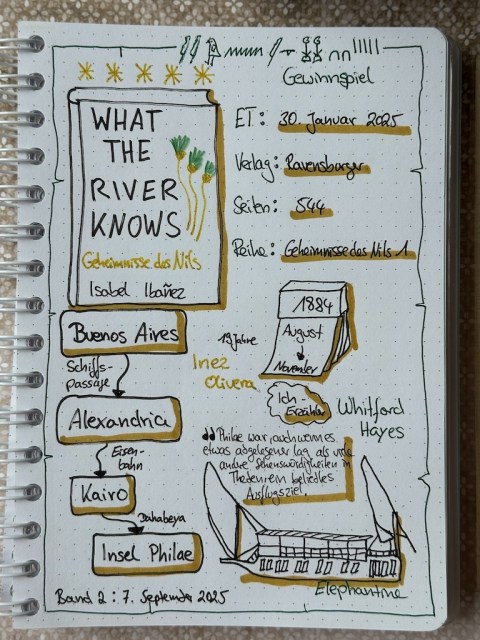 Gewinnspiel
WHAT
THE
RIVER
KNOWS
Geheimnisse des Nils
Isabel Ibañez
ET: 30. Januar 2025
Verlag: Ravensburger
Seiten: 544
Reihe: Geheimnisse des Nils 1
Buenos Aires
Schiffs-
passage
Alexandria
Eisen-
bahn
Kairo
Dahabeya
Insel Philae
1884
August
November
19 Jahre
Inez
Olivera
Ich-
Erzähler
Whitford
Hayes
Philae war, auch wenn es
etwas abgelegener lag als viele
andre Sehenswürdigkeiten in
Theben, ein beliebtes
Ausflugsziel.
Elephantine
Band 2: 7. September 2025